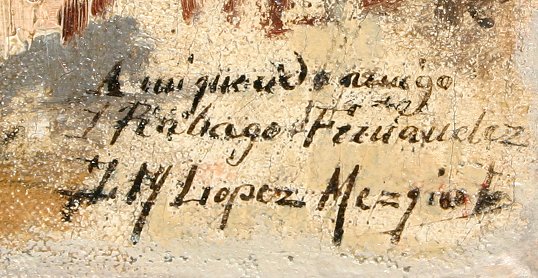 A mi querido amigo
J Rábago Fernandez
J M Lopez Mezquita